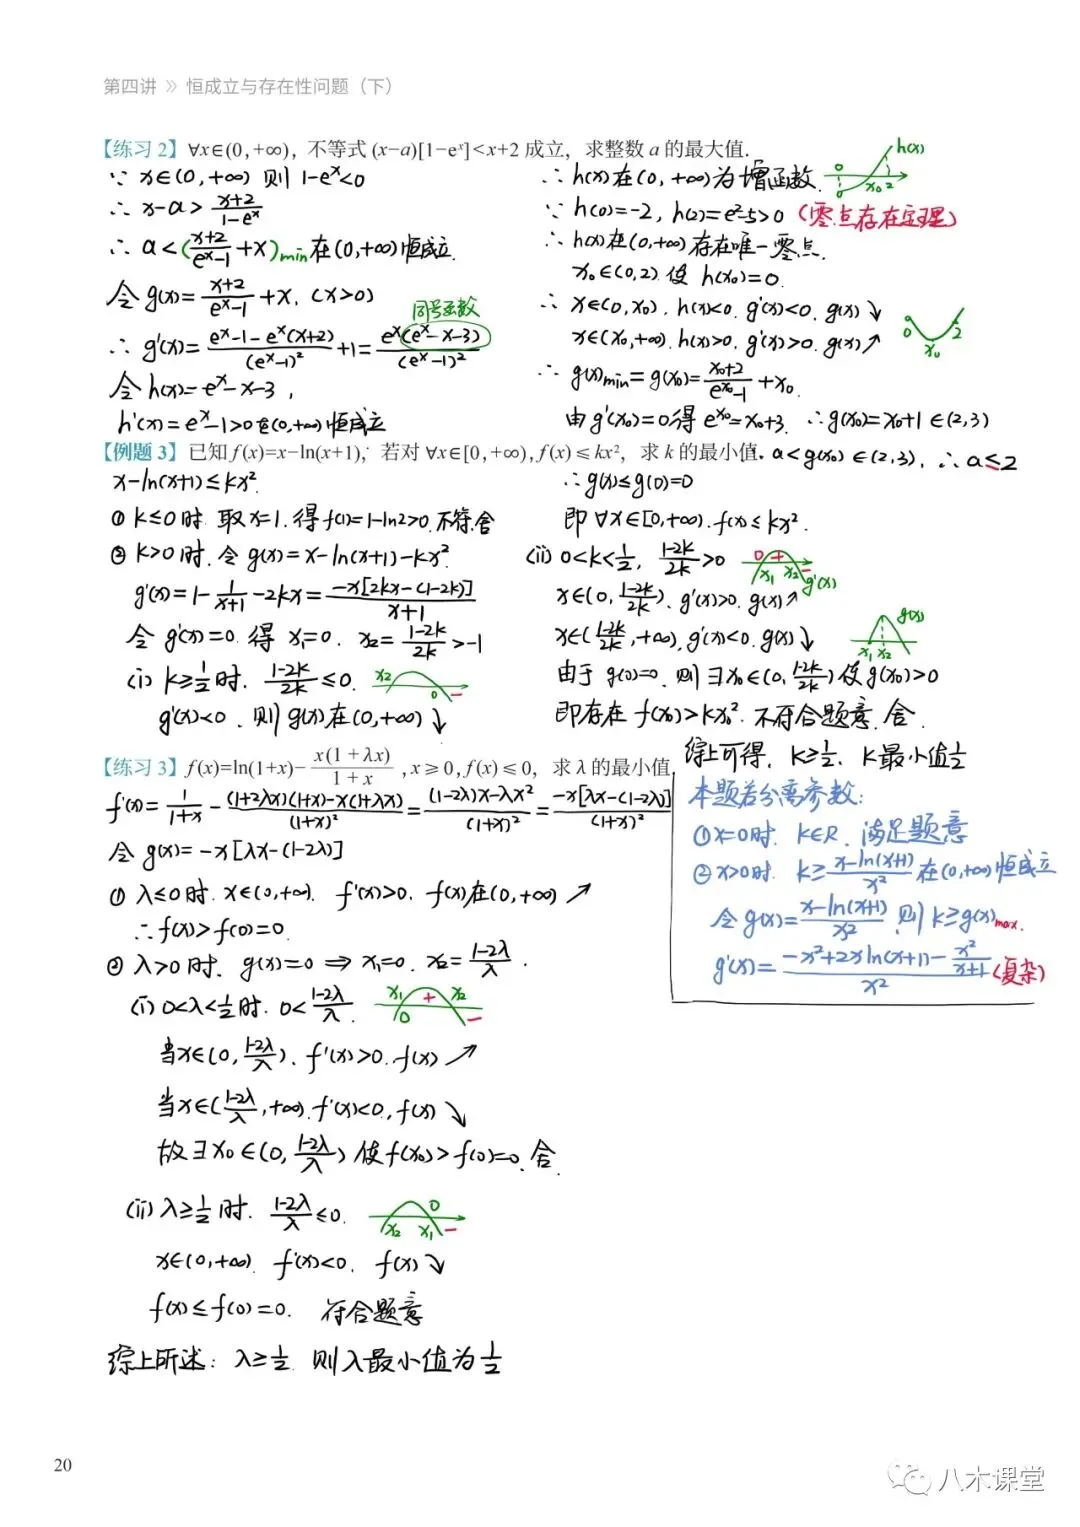 第四讲 》 恒成立与存在性问题（下）
【练习 2】∀x∈(0,+∞)，不等式 (x−a)[1−eˣ]<x+2 成立，求整数 a 的最大值.
∵ x∈(0,+∞) 则 1−eˣ<0
∴ x−a > (x+2)/(1−eˣ)
∴ a < ((x+2)/(eˣ−1) + x)min 在(0,+∞)恒成立.
令 g(x)= (x+2)/(eˣ−1) + x. (x>0)
同号函数
∴ g'(x)= (eˣ−1−eˣ(x+2))/(eˣ−1)² +1 = eˣ(eˣ−x−3)/(eˣ−1)²
令 h(x)=eˣ−x−3，
h'(x)=eˣ−1>0在(0,+∞)恒成立
∴ h(x)在(0,+∞)为增函数.
0 x₀ 2 h(x)
∵ h(0)=−2, h(2)=e²−5>0 (零点存在定理)
∴ h(x)在(0,+∞)存在唯一零点.
x₀∈(0,2) 使 h(x₀)=0.
∴ x∈(0,x₀). h(x)<0. g'(x)<0. g(x)↘
x∈(x₀,+∞). h(x)>0. g'(x)>0. g(x)↗
0 x₀ 2
∴ g(x)min=g(x₀)= (x₀+2)/(e^x₀−1) + x₀.
由 g'(x₀)=0得 e^x₀=x₀+3. ∴g(x₀)=x₀+1∈(2,3)
a<g(x₀)∈(2,3). ∴a≤2
【例题 3】已知 f(x)=x−ln(x+1)，若对 ∀x∈[0,+∞), f(x)≤kx²，求 k 的最小值.
x−ln(x+1)≤kx².
① k≤0时. 取x=1. 得f(1)=1−ln2>0. 不符. 舍
② k>0时. 令 g(x)=x−ln(x+1)−kx²
g'(x)=1− 1/(x+1) −2kx= −x[2kx−(1−2k)]/(x+1)
令 g'(x)=0. 得 x₁=0. x₂= (1−2k)/2k >−1
(i) k≥1/2时. (1−2k)/2k ≤0. x₂ 0 −
g'(x)<0. 则 g(x)在(0,+∞)↘
∴g(x)≤g(0)=0
即 ∀x∈[0,+∞). f(x)≤kx².
(ii) 0<k<1/2, (1−2k)/2k >0 0 + x₁ x₂ − g'(x)
x∈(0, (1−2k)/2k). g'(x)>0. g(x)↗
x∈((1−2k)/2k, +∞). g'(x)<0. g(x)↘ x₁ x₂ g(x)
由于 g(0)=0. 则 ∃x₀∈(0, (1−2k)/2k)使g(x₀)>0
即存在 f(x₀)>kx₀². 不符合题意. 舍.
综上可得. k≥1/2. k最小值1/2
【练习 3】f(x)=ln(1+x)− x(1+λx)/(1+x) , x≥0, f(x)≤0，求 λ 的最小值.
f'(x)= 1/(1+x) − ((1+2λx)(1+x)−x(1+λx))/(1+x)² = ((1−2λ)x−λx²)/(1+x)² = −x[λx−(1−2λ)]/(1+x)²
令 g(x)=−x[λx−(1−2λ)]
① λ≤0时. x∈(0,+∞). f'(x)>0. f(x)在(0,+∞)↗
∴f(x)>f(0)=0.
② λ>0时. g(x)=0 ⇒ x₁=0. x₂= (1−2λ)/λ .
(i) 0<λ<1/2时. 0< (1−2λ)/λ x₁ + x₂ 0 −
当x∈(0, (1−2λ)/λ). f'(x)>0. f(x)↗
当x∈((1−2λ)/λ, +∞). f'(x)<0, f(x)↘
故 ∃x₀∈(0, (1−2λ)/λ) 使 f(x₀)>f(0)=0. 舍.
(ii) λ≥1/2时. (1−2λ)/λ ≤0. 0 x₂ x₁ −
x∈(0,+∞). f'(x)<0. f(x)↘
f(x)≤f(0)=0. 符合题意
综上所述: λ≥1/2. 则λ最小值为1/2
本题若分离参数:
① x=0时. k∈R. 满足题意
② x>0时. k≥ (x−ln(x+1))/x² 在(0,+∞)恒成立
令 g(x)= (x−ln(x+1))/x². 则 k≥g(x)max.
g'(x)= (−x²+2xln(x+1)− x²/(x+1))/x² (复杂)
20
八木课堂